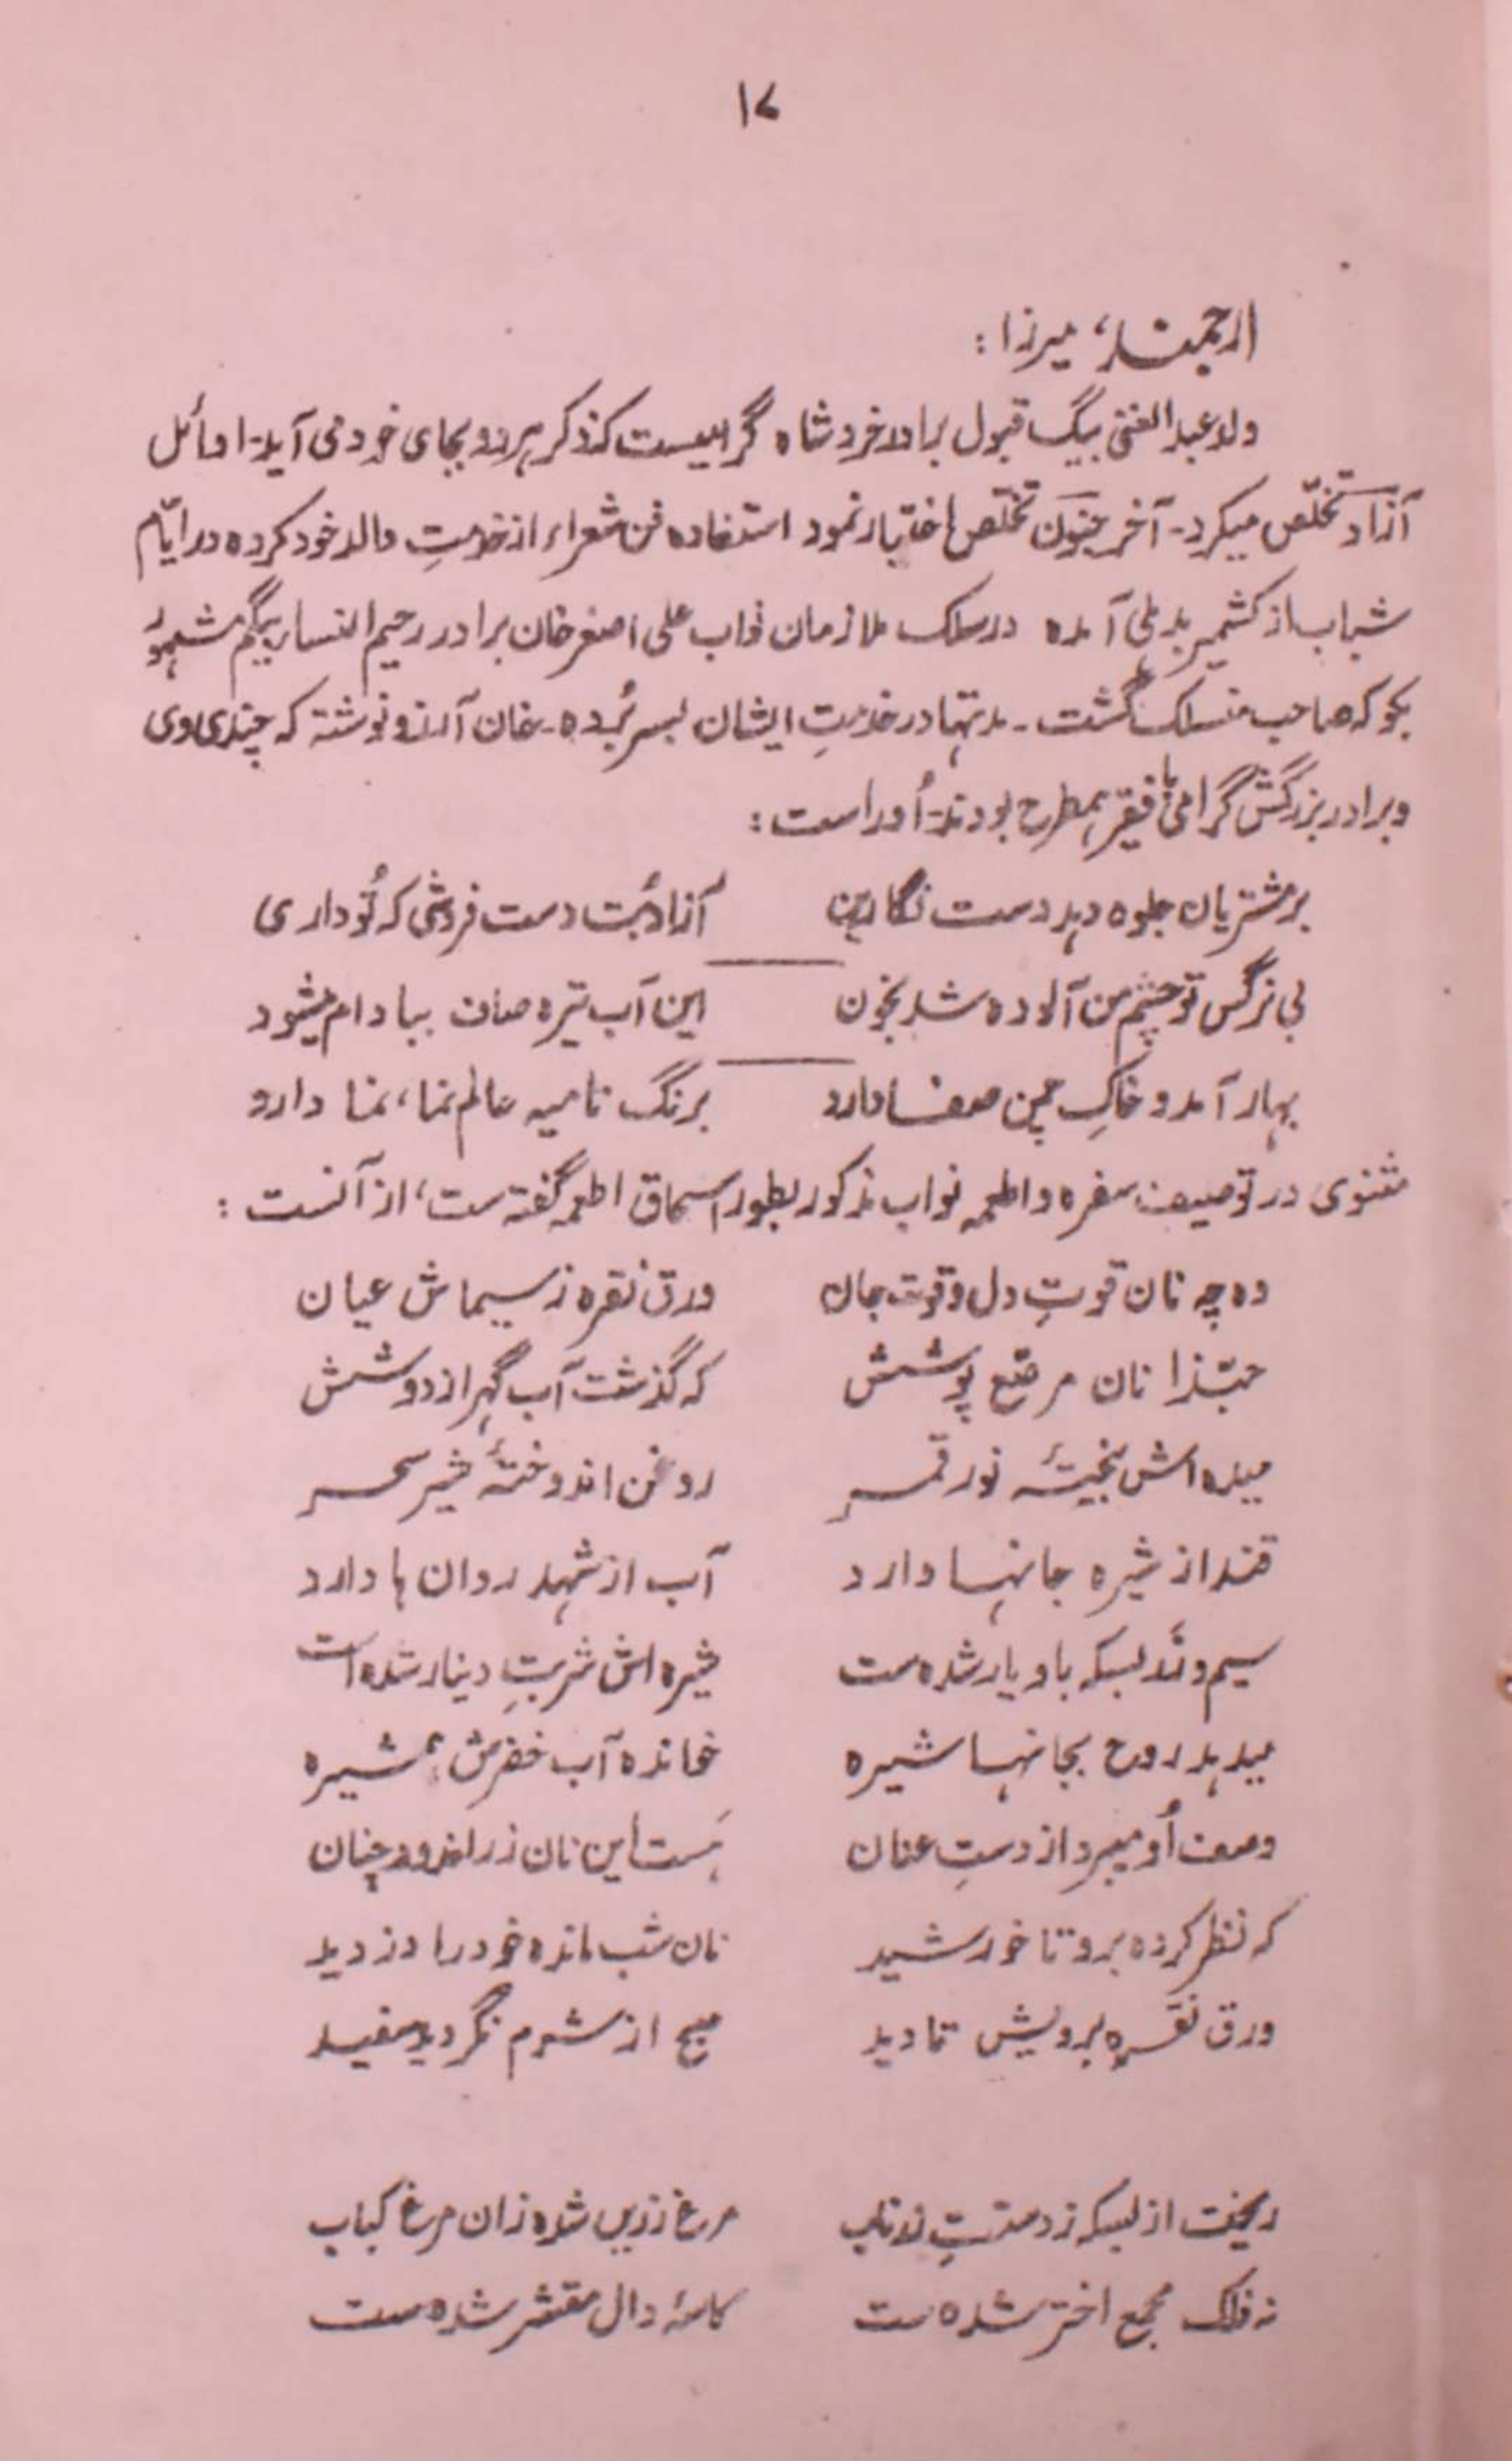 ۱۷
ارجمند، میرزا :
ولد عبدالغنی بیگ قبول برادر خرد شاه گرامیست کذکر هر دو بجای خود می آید۔ اوائل
آزاد تخلّص میکرد۔ آخر جنون تخلّص اختیار نمود استفاده فن شعراء از خدمتِ والد خود کرده در ایّام
شباب از کشمیر بدہلی آمده در سلک ملازمان نواب علی اصغر خان برادر رحیم النساء بیگم مشہور
بکوکه صاحب منسلک گشت۔ مدتہا در خدمتِ ایشان بسر بُرده۔ خان آرزو نوشته که چندی وی
و برادر بزرگش گرامی با فقیر ہمطرح بودند۔ اُوراست :
بر مشتریان جلوه دہد دست نگارین آزاد بُت دست فروشی که تُو داری
بی نرگس تو چشم من آلوده شد بخون این آب تیره صاف ببادام میشود
بہار آمد و خاکِ چمن صفا دارد برنگ نامیه عالم نما، نما دارد
مثنوی در توصیف سفره و اطعمه نواب مذکور بطور اسحاق اطعمه گفته ست، از آنست :
وه چه نان قوتِ دل و قوت جان ورق نقره ز سیماش عیان
حبّذا نان مرصّع پوشش که گذشت آب گہر از دوشش
میده اش بیختۂ نور قمر روغن اندوختۂ شیر سحر
قند از شیره جانہا دارد آب از شہد روان ہا دارد
سیم و زَر بسکه باو یار شده ست شیره اش شربتِ دینار شده است
میدہد روح بجانہا شیره خوانده آب خضرش ہمشیره
وصف اُو میبرد از دست عنان ہَست این نان زر اندود چنان
که نظر کرده برو تا خورشید نان شب مانده خود را دزدید
ورق نقره برویش تا دید صبح از شرم نگردید سفید
ریخت از بسکه ز دستت زر ناب مرغ زریں شده زان مرغ کباب
نه فلک مجمع اختر شده ست کاسۂ دال مقشر شده ست